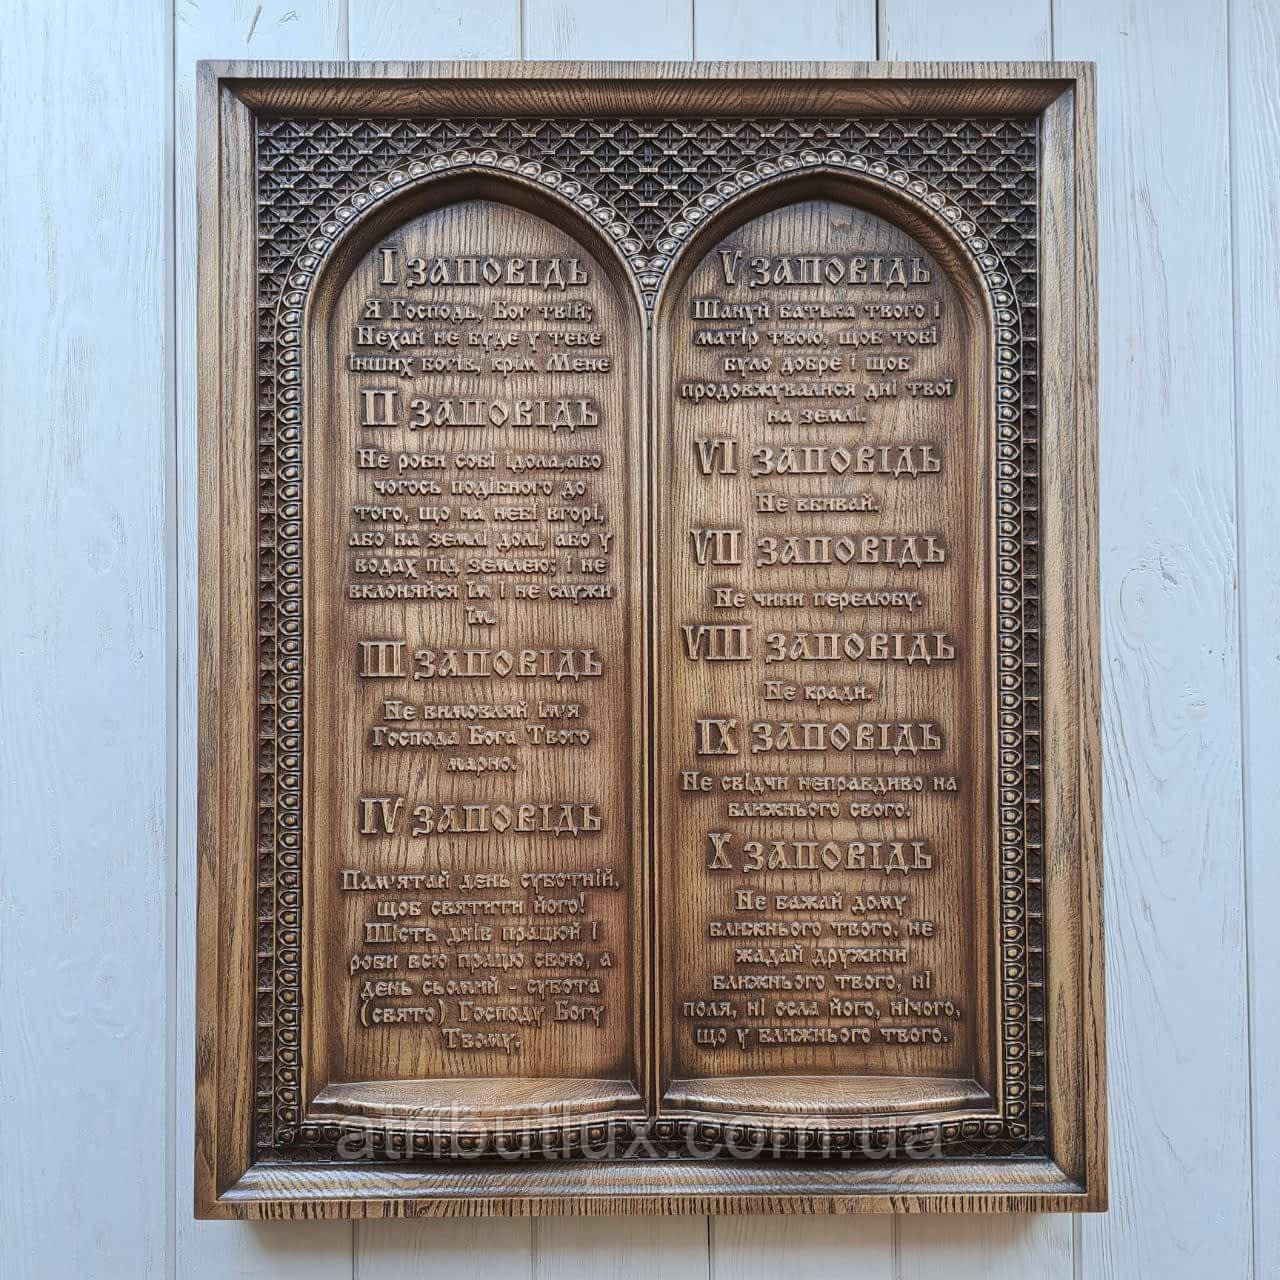 I заповідь
Я Господь, Бог твій;
Нехай не буде у тебе
інших богів, крім Мене
II заповідь
Не роби собі ідола,або
чогось подібного до
того, що на небі вгорі,
або на землі долі, або у
водах під землею; і не
вклоняйся їм і не служи
їм.
III заповідь
Не вимовляй ім'я
Господа Бога Твого
марно.
IV заповідь
Пам'ятай день суботній,
щоб святити його!
Шість днів працюй і
роби всю працю свою, а
день сьомий - субота
(свято) Господу Богу
Твому.
V заповідь
Шануй батька твого і
матір твою, щоб тобі
було добре і щоб
продовжувалися дні твої
на землі.
VI заповідь
Не вбивай.
VII заповідь
Не чини перелюбу.
VIII заповідь
Не кради.
IX заповідь
Не свідчи неправдиво на
ближнього свого.
X заповідь
Не бажай дому
ближнього твого, не
жадай дружини
ближнього твого, ні
поля, ні осла його, нічого,
що у ближнього твого.
atributlux.com.ua